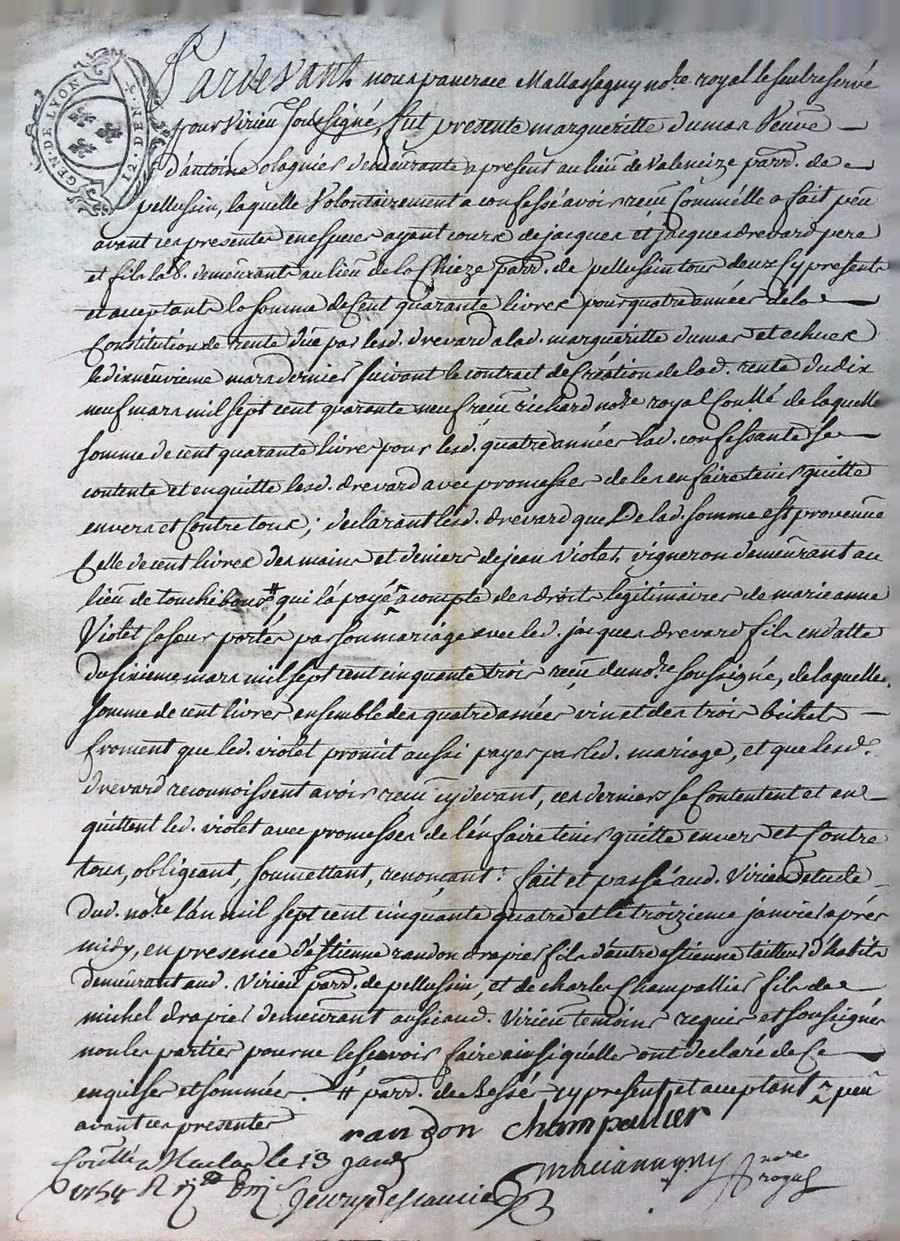 GEN. DE LYON
12. DEN.
Pardevant nous pancrace Mallassagny no.re royal le seul reservé
pour Virieu soussigné, fut presente margueritte dumas Veuve
d'antoine olagnier demeurante a present au lieu de Valencize parr.e de
pellussin, laquelle Volontairement a confessé avoir reçeu comme elle a fait peu
avant ces presentes en especes ayant cours de jacques et jacques drevard pere
et fils lab.rs demeurants au lieu de la Chieze parr.e de pellussin tous deux cy presents
et acceptants la somme de Cent quarante livres pour quatre années de la
Constitution de rente düe par lesd. drevard a lad. margueritte dumas et echues
le dixneuvieme mars dernier suivant le contract de Création de lad. rente du dix
neuf mars mil sept cent quarante neuf reçeu richard no.re royal Coullé de laquelle
somme de cent quarante livres pour lesd. quatre années lad. confessante se
contente et en quitte lesd. drevard avec promesses de les en faire tenir quitte
envers et Contre tous; declarant lesd. drevard que De lad. somme est provenue
Celle de cent livres des mains et deniers de jean Violet, vigneron demeurant au
lieu de touchebouf # qui l'a payé a compte des droits legitimaires de marie anne
Violet sa seur portés par son mariage avec led. jacques drevard fils en datte
du sixieme mars mil sept cent cinquante trois reçeu du no.re soussigné, de laquelle
somme de cent livres ensemble des quatre anées vin et des trois bichets
froment que led. violet promit aussi payer par led. mariage, et que lesd.
drevard reconnoissent avoir reçeu cy devant, ces derniers se Contentent et en
quittent led. violet avec promesses de l'en faire tenir quitte envers et Contre
tous, obligeant, soumettant, renonçant: fait et passé aud. Virieu etude
dud. no.re l'an mil sept cent cinquante quatre et le troizieme janvier aprés
midy, en presence d'Estienne randon drapier fils d'autre estienne tailleur d'habits
demeurant aud. Virieu parr.e de pellussin, et de charles Champallier fils de
michel drapier demeurant aussi aud. Virieu temoins requis et soussignés
non les parties pour ne le sçavoir faire ainsi qu'elles ont declaré de Ce
enquises et sommées. # parr.e de Bessé cy present et acceptant peu
avant ces presentes
randon champallier
Coullé a Maclas le 13 janv.er
1754